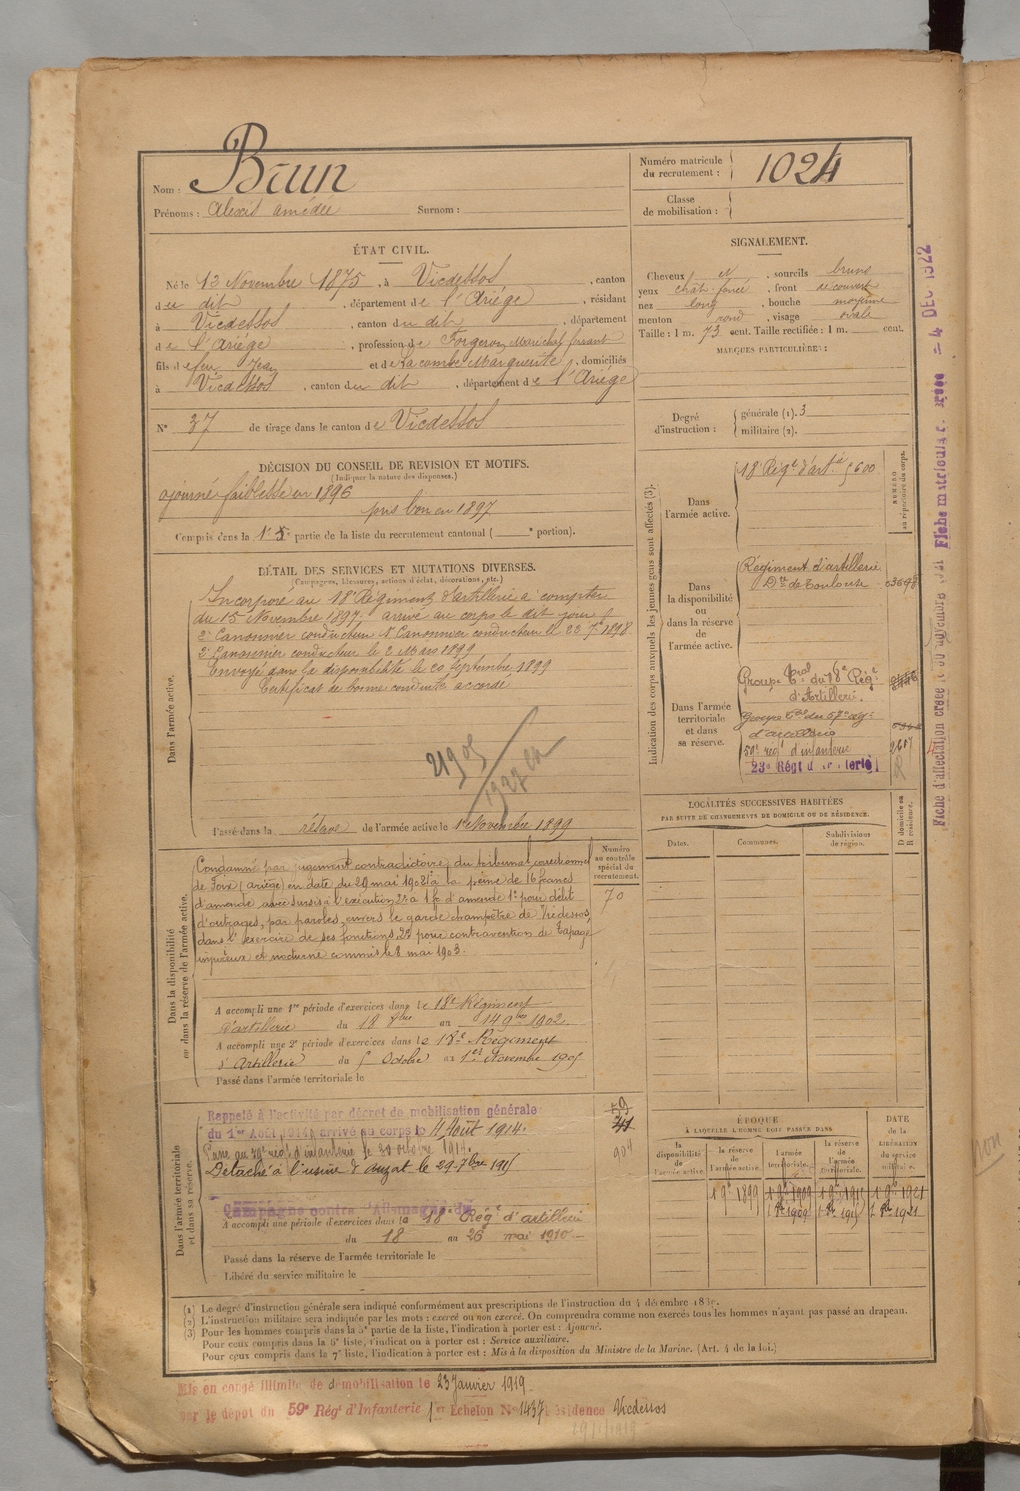 Nom : Brun
Prénoms : Alexis Amédée Surnom :
Numéro matricule du recrutement : 1024
Classe de mobilisation :
ÉTAT CIVIL.
Né le 13 Novembre 1875, à Vicdessos, canton
du dit, département de l'Ariège, résidant
à Vicdessos, canton du dit, département
de l'Ariège, profession de Forgeron Maréchal ferrant
fils de feu Jean et de Lacombe Marguerite, domiciliés
à Vicdessos, canton du dit, département de l'Ariége
N° 37 de tirage dans le canton de Vicdessos
SIGNALEMENT.
Cheveux et, sourcils bruns
yeux chât. foncé, front découvert
nez long, bouche moyenne
menton rond, visage ovale
Taille : 1 m. 73 cent. Taille rectifiée : 1 m. cent.
MARQUES PARTICULIÈRES :
Degré d'instruction : générale (1). 3
militaire (2).
DÉCISION DU CONSEIL DE REVISION ET MOTIFS.
(Indiquer la nature des dispenses.)
ajourné faiblesse en 1896
pris bon en 1897
Compris dans la partie de la liste du recrutement cantonal ( portion).
DÉTAIL DES SERVICES ET MUTATIONS DIVERSES.
(Campagnes, blessures, actions d'éclat, décorations, etc.)
Dans l'armée active.
Incorporé au 18e Régiment d'artillerie à compter
du 15 Novembre 1897, arrivé au corps le dit jour
2e Canonnier conducteur 1er Canonnier conducteur le 23 7bre 1898
2e Canonnier conducteur le 2 Mars 1899
Envoyé dans la disponibilité le 20 Septembre 1899
Certificat de bonne conduite accordé
Passé dans la réserve de l'armée active le 1er Novembre 1899
Numéro au contrôle spécial du recrutement.
70
Dans la disponibilité ou dans la réserve de l'armée active.
Condamné par jugement contradictoire du tribunal correctionnel
de Foix (Ariège) en date du 29 mai 1903 1° à la peine de 16 francs
d'amende avec sursis à l'exécution 2° à 1f d'amende 1° pour délit
d'outrages, par paroles, envers le garde champêtre de Vicdessos,
dans l'exercice de ses fonctions, 2° pour contravention de tapage
injurieux et nocturne commis le 8 mai 1903.
A accompli une 1re période d'exercices dans le 18e Régiment
d'artillerie du 18 8bre au 14 9bre 1902
A accompli une 2e période d'exercices dans le 18e Régiment
d'Artillerie du 5 Octobre au 1er Novembre 1905
Passé dans l'armée territoriale le
Dans l'armée territoriale et dans sa réserve.
Rappelé à l'activité par décret de mobilisation générale
du 1er Août 1914, arrivé au corps le 4 Août 1914.
Passé au 59e régt d'infanterie le 20 octobre 1914.
Détaché à l'usine d'Auzat le 29 7bre 1915
Campagne contre l'Allemagne du
A accompli une période d'exercices dans le 18e Régt d'artillerie
du 18 au 26 mai 1910
Passé dans la réserve de l'armée territoriale le
Libéré du service militaire le
59
904
Indication des corps auxquels les jeunes gens sont affectés (3).
NUMÉRO au répertoire du corps.
Dans l'armée active.
18 Régt d'artie 5600
Dans la disponibilité ou dans la réserve de l'armée active.
Régiment d'artillerie
Don de Toulouse
Dans l'armée territoriale et dans sa réserve.
Groupe Tral du 18e Régt
d'Artillerie.
Groupe Tal du 57e régt
d'artillerie
59e régt d'infanterie
23e Régt d'Infanterie
LOCALITÉS SUCCESSIVES HABITÉES
PAR SUITE DE CHANGEMENTS DE DOMICILE OU DE RÉSIDENCE.
Dates. Communes. Subdivisions de région. D domicile ou R résidence.
ÉPOQUE
À LAQUELLE L'HOMME DOIT PASSER DANS
la disponibilité de l'armée active. la réserve de l'armée active. l'armée territoriale. la réserve de l'armée territoriale. DATE de la LIBÉRATION du service militaire.
1 9b 1899 1 9b 1909 1 9b 1915 1 9b 1921
1 8b 1909 1 8b 1915 1 8b 1921
(1) Le degré d'instruction générale sera indiqué conformément aux prescriptions de l'instruction du 4 décembre 1889.
(2) L'instruction militaire sera indiquée par les mots : exercé ou non exercé. On comprendra comme non exercés tous les hommes n'ayant pas passé au drapeau.
(3) Pour les hommes compris dans la 5e partie de la liste, l'indication à porter est : Ajourné.
Pour ceux compris dans la 6e liste, l'indication à porter est : Service auxiliaire.
Pour ceux compris dans la 7e liste, l'indication à porter est : Mis à la disposition du Ministre de la Marine. (Art. 4 de la loi.)
Mis en congé illimité de démobilisation le 23 Janvier 1919
par le dépôt du 59e Régt d'Infanterie 1er Echelon N° 1437 résidence Vicdessos
non